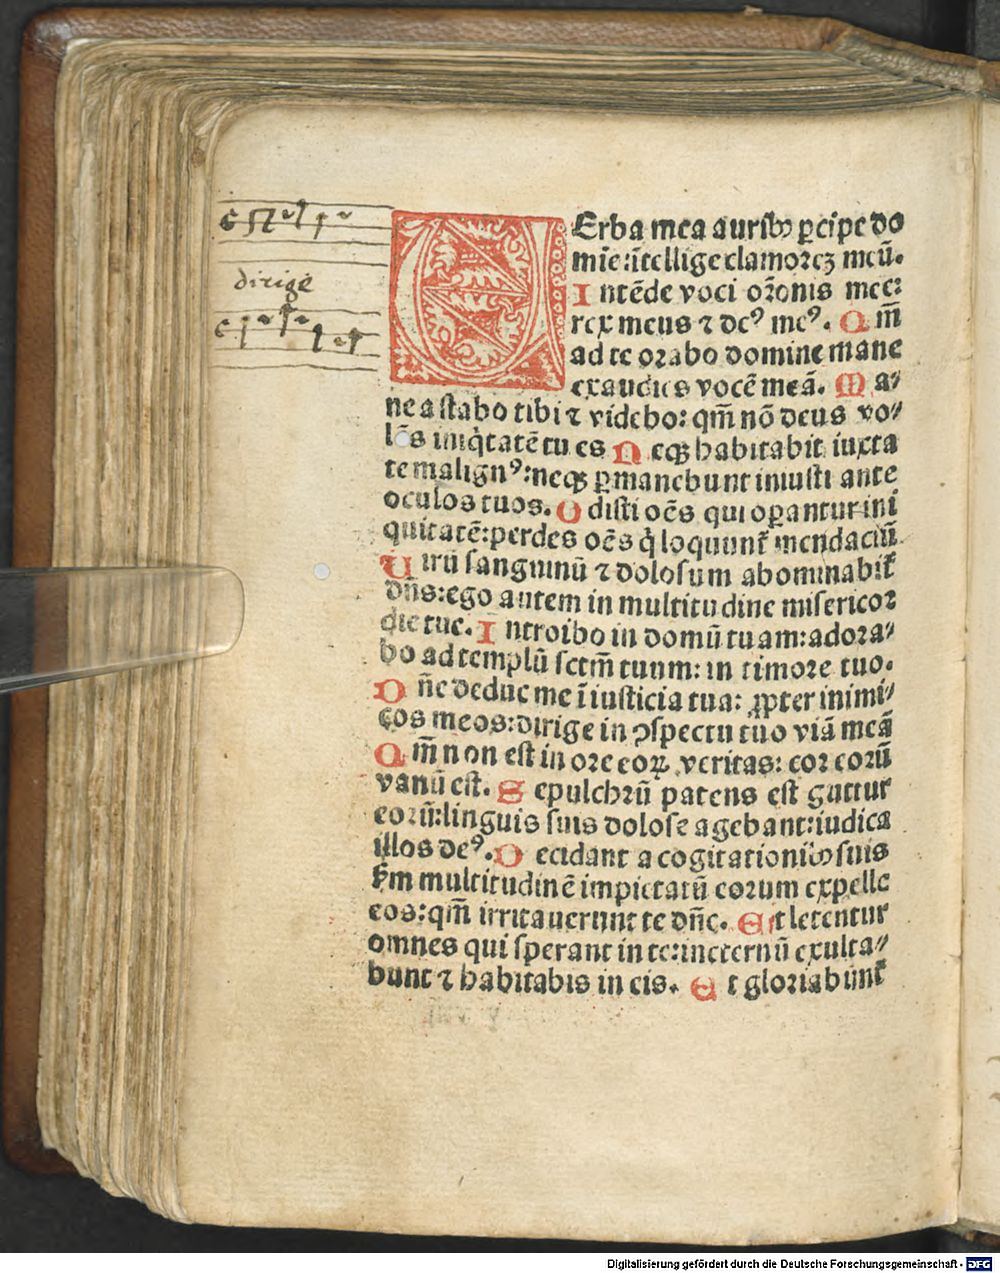 dirigẽ
Verba mea aurib⁹ ꝑcipe do
mīe: ītellige clamorēꝫ meū.
Intēde voci or̃onis mee:
rex meus ⁊ de⁹ me⁹. Qm̄
ad te orabo domine mane
exaudies vocē meā. Ma⸗
ne astabo tibi ⁊ videbo: qm̄ nō deus vo⸗
lēs iniq̇tatē tu es Neqꝫ habitabit iuxta
te malign⁹: neqꝫ ꝑmanebunt iniusti ante
oculos tuos. Odisti oēs qui oꝑantur ini
quitatē: perdes oēs q̇ loquunt᷑ mendaciū.
Uirū sanguinū ⁊ dolosum abominabit᷑
dn̄s: ego autem in multitudine misericor
die tue. Introibo in domū tuam: adora⸗
bo ad templū sctm̄ tuum: in timore tuo.
Dn̄e deduc me ī iusticia tua: ꝓpter inimi⸗
cos meos: dirige in ꝯspectu tuo viā meā
Qm̄ non est in ore eoꝝ veritas: cor eorū
vanū est. Sepulchrū patens est guttur
eorū: linguis suis dolose agebant: iudica
illos de⁹. Decidant a cogitationib⁹ suis
ẜm multitudinē impietatū eorum expelle
eos: qm̄ irritauerunt te dn̄e. Et letentur
omnes qui sperant in te: in eternū exulta⸗
bunt ⁊ habitabis in eis. Et gloriabunt᷑
Digitalisierung gefördert durch die Deutsche Forschungsgemeinschaft - DFG